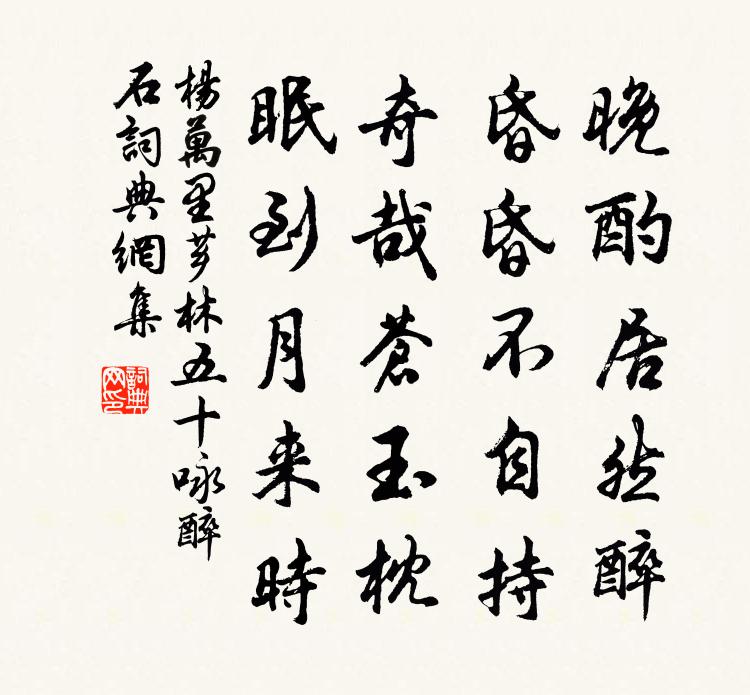 晚酌居然醉
昏昏不自持
奇哉蒼玉枕
眠到月来時
楊萬里芗林五十咏醉
石詞典網集
詞典
网印